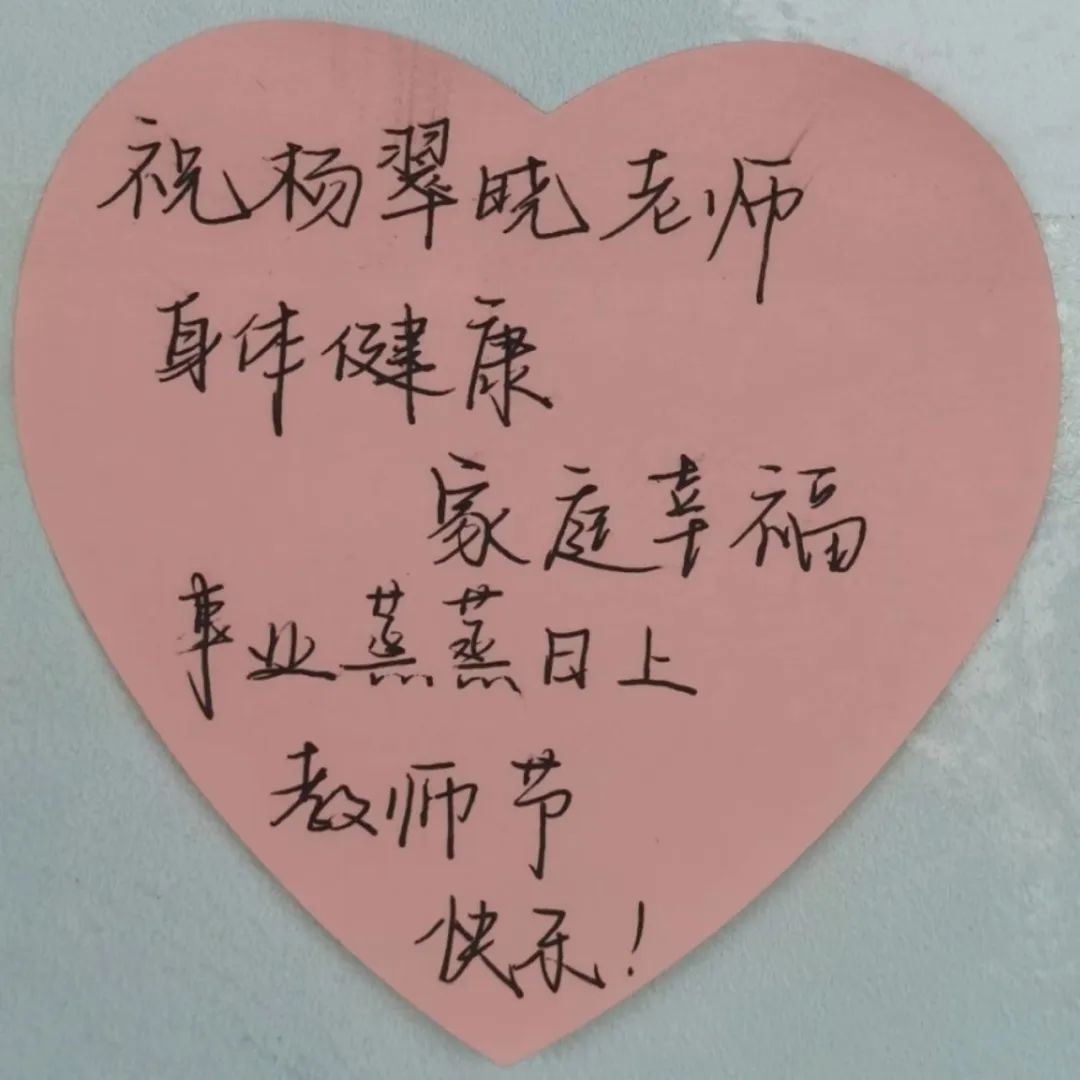 祝杨翠晓老师
身体健康
家庭幸福
事业蒸蒸日上
教师节
快乐!